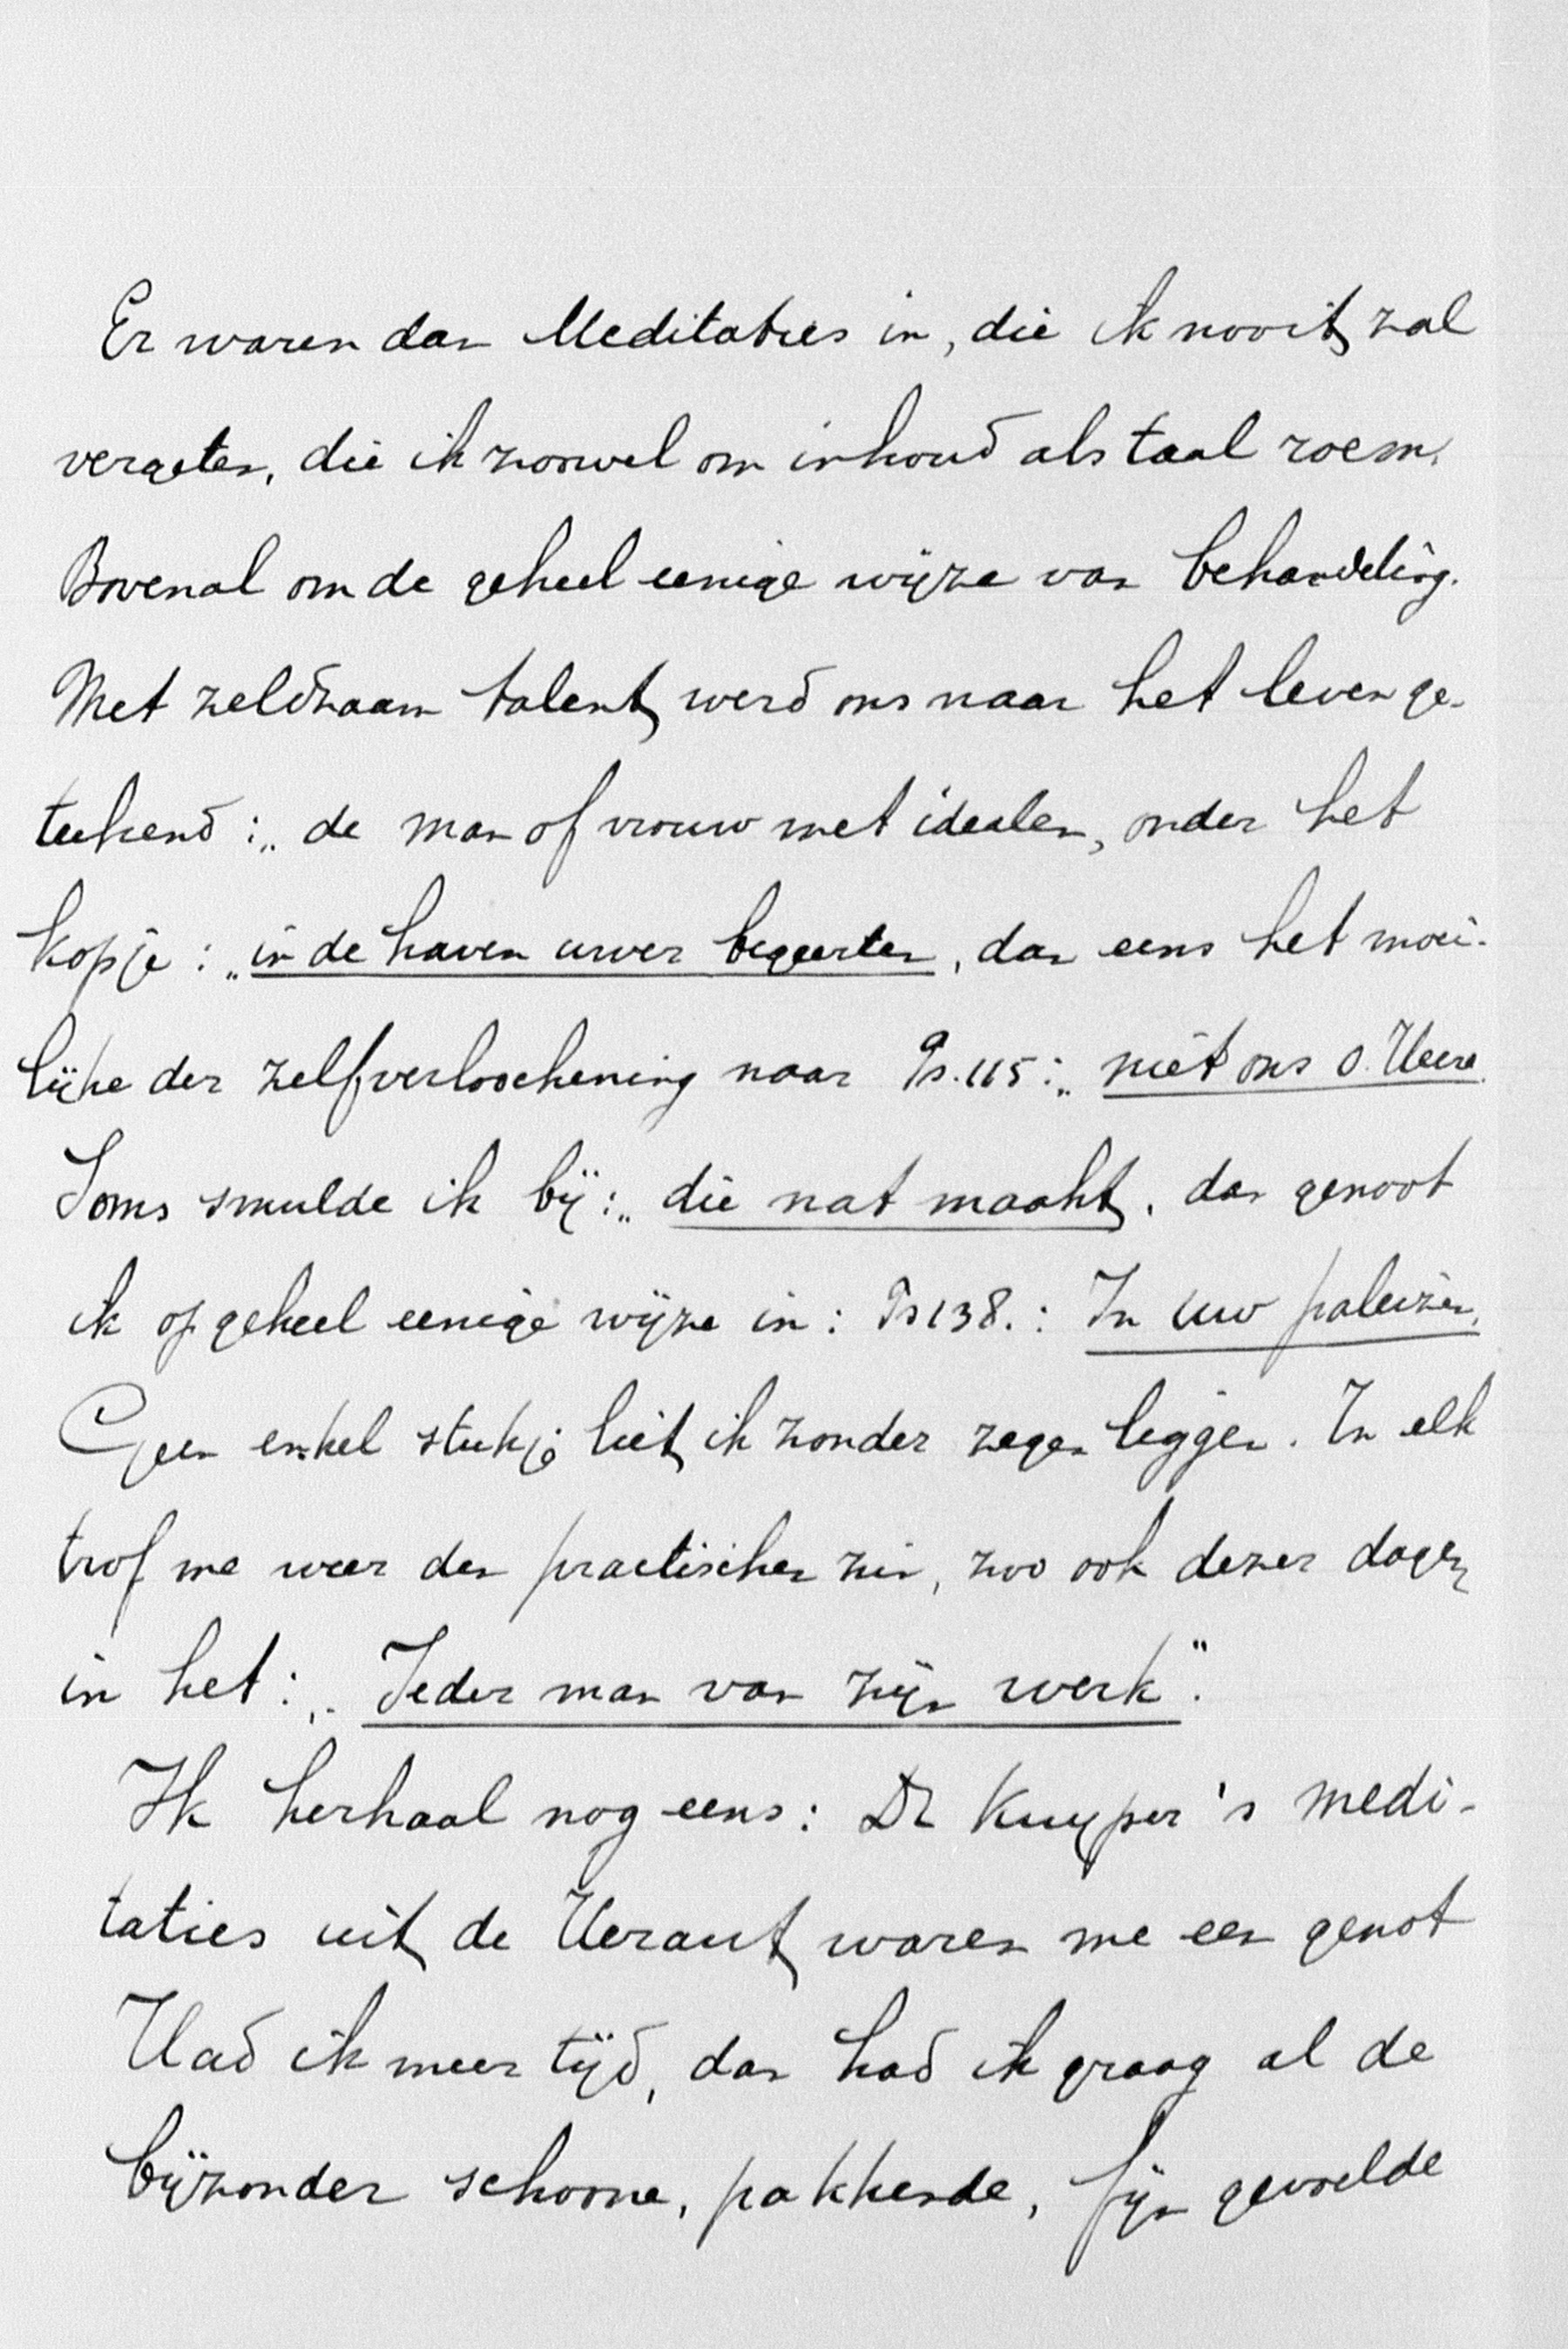 Er waren dan Meditaties in, die ik nooit zal
vergeten, die ik zoowel om inhoud als taal roem.
Bovenal om de geheel eenige wijze van behandeling.
Met zeldzaam talent werd ons naar het leven ge-
teekend: „de man of vrouw met idealen, onder het
kopje: „in de haven uwer begeerten, dan eens het moei-
lijke der zelfverloochening naar Ps. 115: „niet ons o. Heere.
Soms smulde ik bij: „die nat maakt, dan genoot
ik op geheel eenige wijze in: Ps 138.: In Uw paleizen.
Geen enkel stukje liet ik zonder zegen leggen. In elk
trof me weer den practischen zin, zoo ook dezer dagen
in het: „Ieder man van zijn werk".
Ik herhaal nog eens: Dr Kuyper's medi-
taties uit de Heraut waren me een genot
Had ik meer tijd, dan had ik graag al de
bijzonder schoone, pakkende, fijn gevoelde